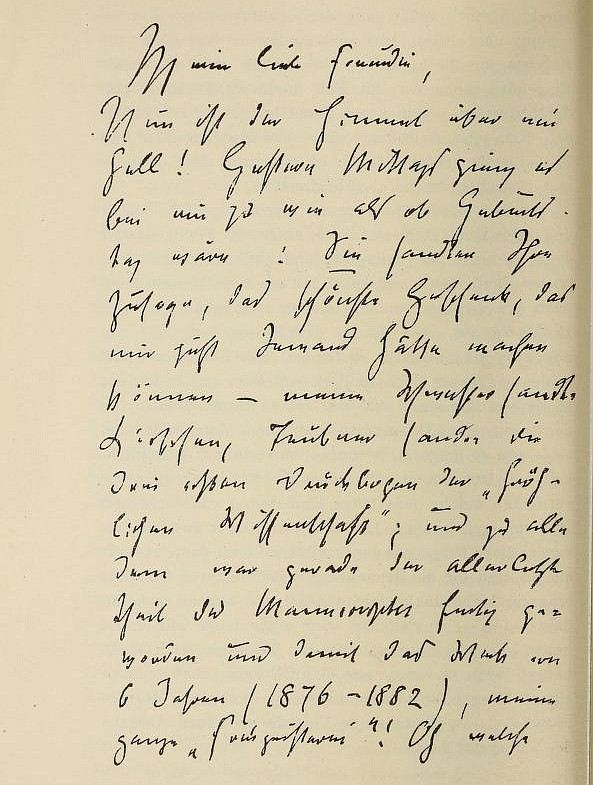 Meine liebe Freundin,
Nun ist der Himmel über mir
hell! Gestern Mittag gieng es
bei mir zu wie als ob Geburts-
tag wäre: Sie sandten Ihre
Zusage, das schönste Geschenk, das
mir jetzt Jemand hätte machen
können — meine Schwester sandte
Kirschen, Teubner sandte die
drei ersten Druckbogen der „fröh-
lichen Wissenschaft“; und zu alle
dem war gerade der allerletzte
Theil des Manuscriptes fertig ge-
worden und damit das Werk von
6 Jahren (1876–1882), meine
ganze „Freigeisterei“! Oh welche